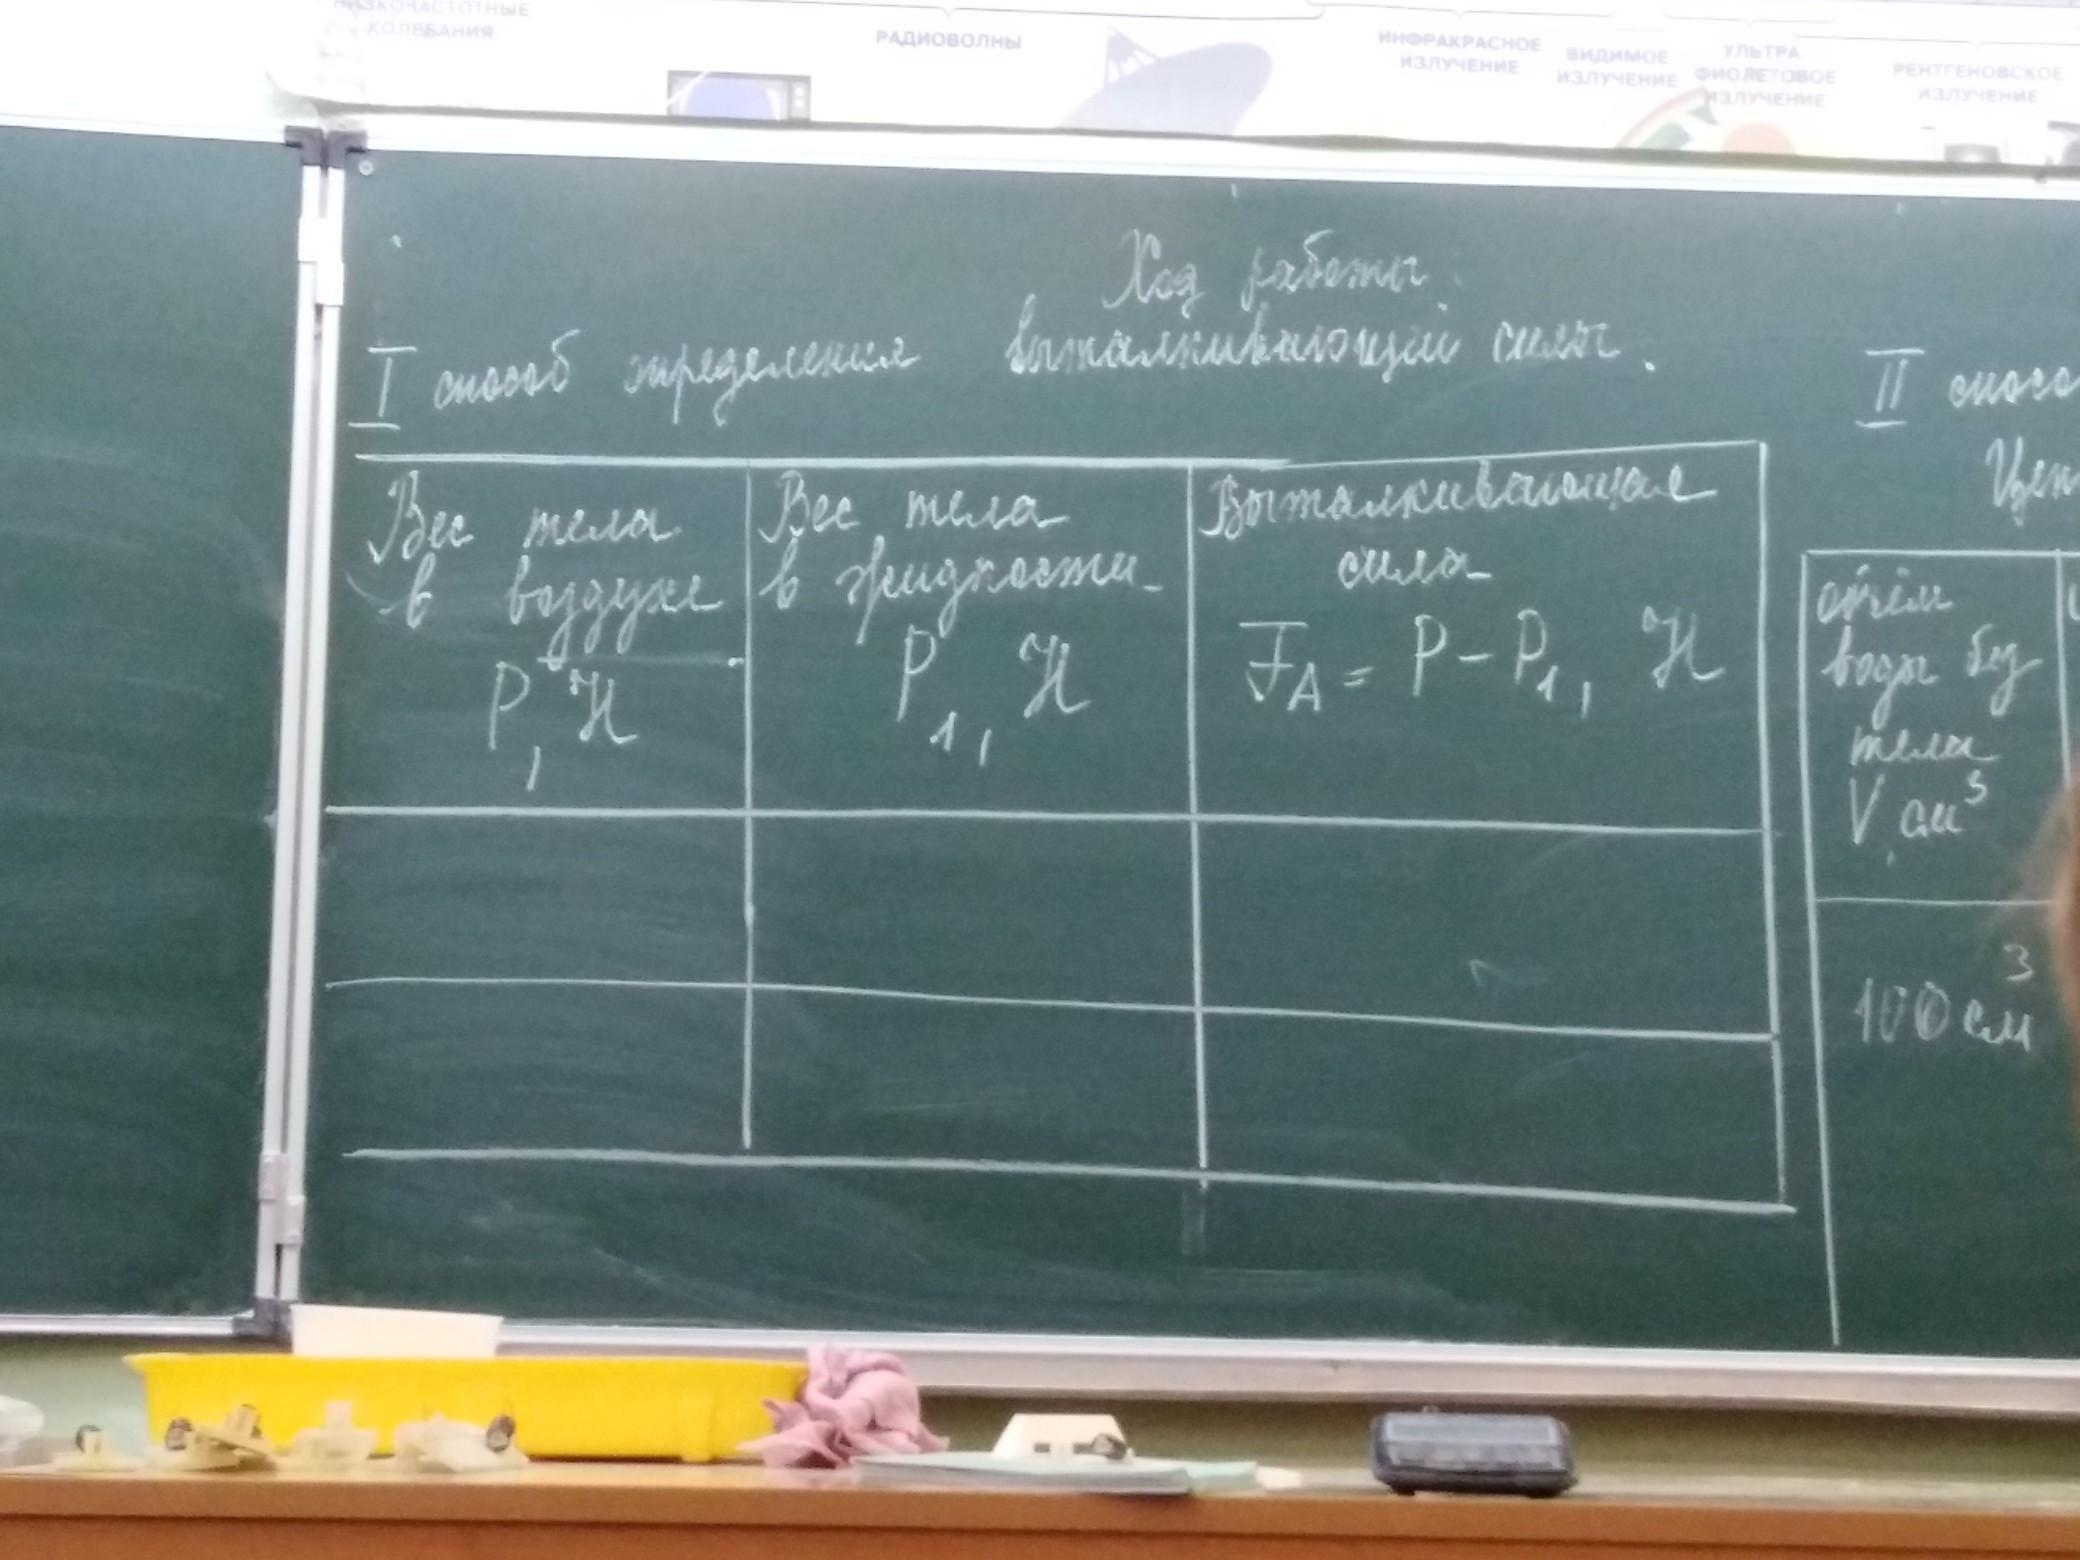 НИЗКОЧАСТОТНЫЕ
КОЛЕБАНИЯ
РАДИОВОЛНЫ
ИНФРАКРАСНОЕ
ИЗЛУЧЕНИЕ
ВИДИМОЕ
ИЗЛУЧЕНИЕ
УЛЬТРА
ФИОЛЕТОВОЕ
ИЗЛУЧЕНИЕ
РЕНТГЕНОВСКОЕ
ИЗЛУЧЕНИЕ
Ход работы
I способ определения выталкивающей силы.
Вес тела
в воздухе
P, Н
Вес тела
в жидкости
P₁, Н
Выталкивающая
сила
F_A = P - P₁, Н
II спосо
Цен
объём
воды без
тела
V, см³
100 см³